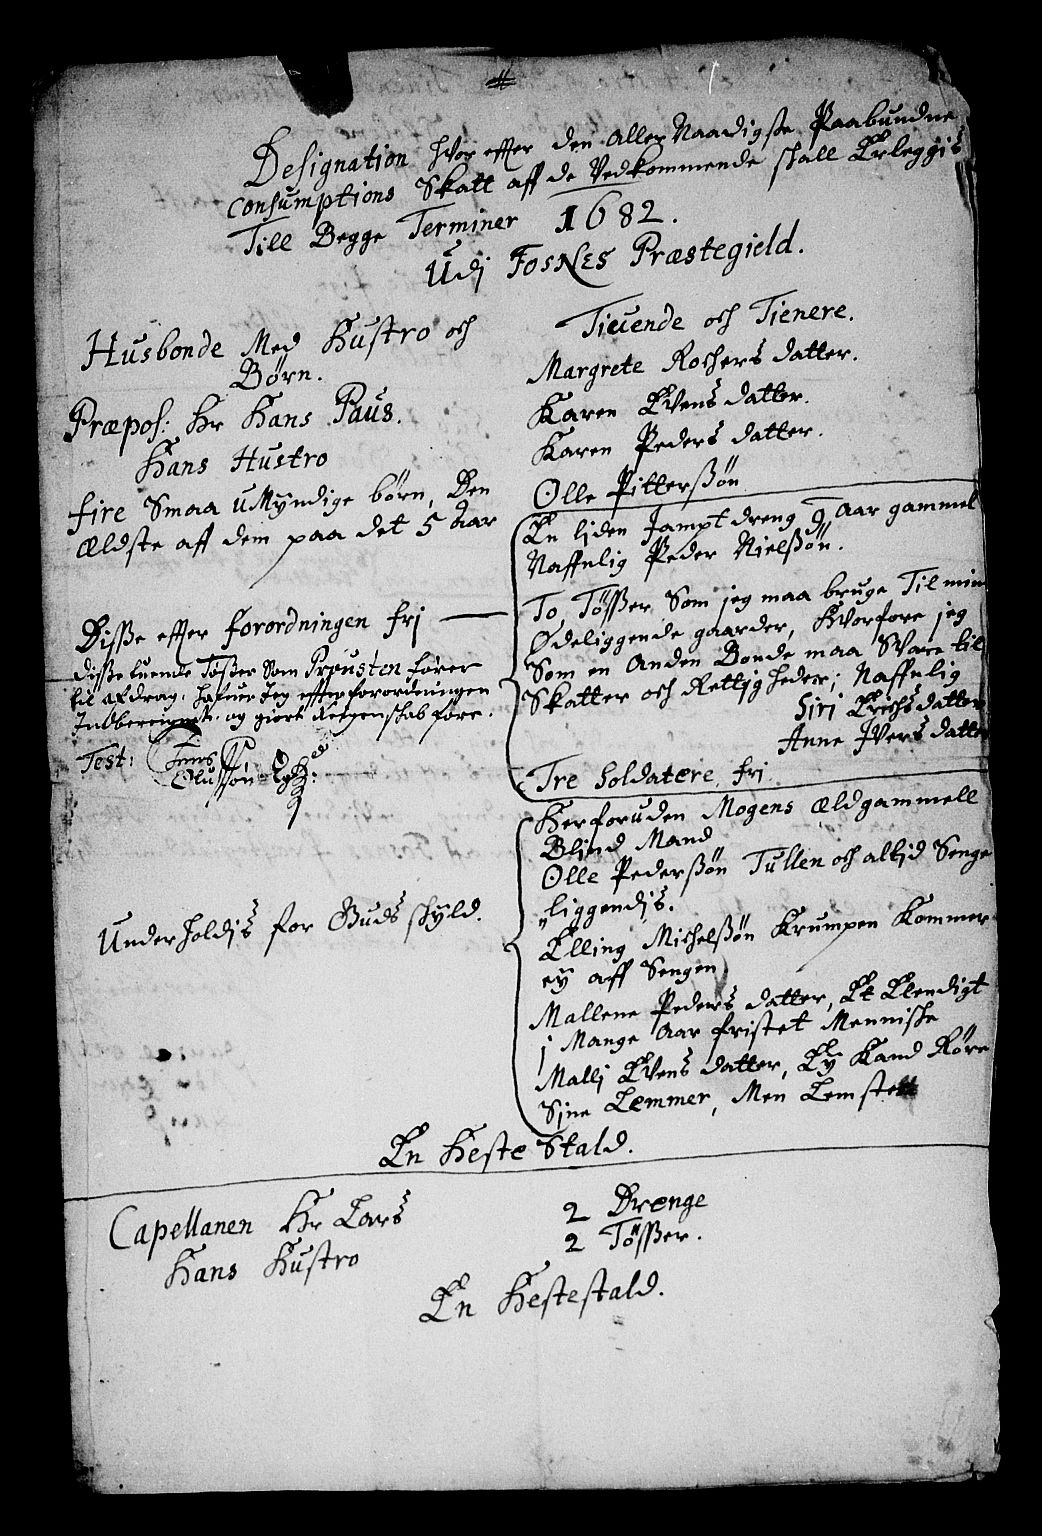 Designation hvor effter den Aller Naadigste Paabundne
Consumptions Skatt aff de Vedkommende skall Erleggis
Till Begge Terminer 1682.
Udj Fosnes Præstegield.
Husbonde Med Hustro och
Børn.
Præpos: Hr Hans Paus.
Hans Hustro
fire Smaa uMyndige børn, Den
Ældste aff dem paa det 5 Aar
Disse effter forordningen frj
disse tuende Tøsser Som Prousten fører
til afdrag, hafuer Jeg effter forordningen
Indberegnet og giort Reigenschab fore.
Test:
Olufsøn
Tieuende och Tienere.
Margrete Rochers datter.
Karen Evens datter.
Karen Peders datter.
Olle Pitterssøn
En ljden Jampt dreng 9 Aar gammel
Naffnlig Peder Nielssøn.
To Tøsser Som jeg maa bruge Til min
Ødeliggende gaarder, Hvorfore jeg
Som en Anden Bonde maa Svare til
Skatter och Rettigheder; Naffnlig
Siri Erichs datter
Anne Ivers datter
Tre Soldatere, frj
Underholdis for Guds skyld.
Herforuden Mogens ældgammell
Blind Mand
Olle Pederssøn Tullen och altjd Senge
liggendis.
Elling Michelssøn Krumpen Kommer
ey aff Sengen
Mallene Peders datter, Et Elendigt
j Mange Aar fristet Menniske
Malli Evens datter, Ey Kand Røre
Sine Lemmer, Men Lemstett
En Heste Stald.
Capellanen Hr Lars
Hans Hustro
2 Drenge
2 Tøsser.
En Hestestald.